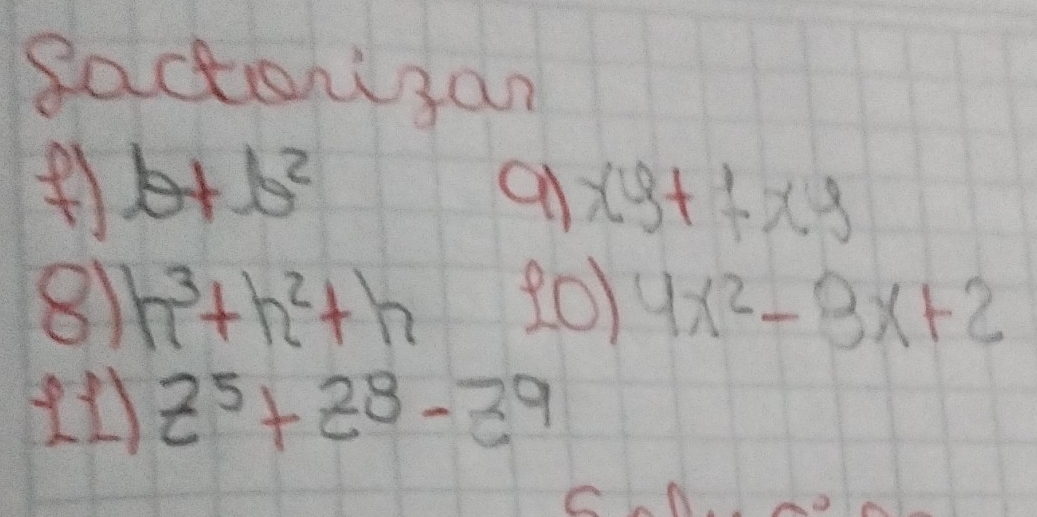 Factorizar
7) b+b²
9) xy+7xy
8) h³+h²+h
10) 4x²-8x+2
11) z⁵+z⁸-z⁹